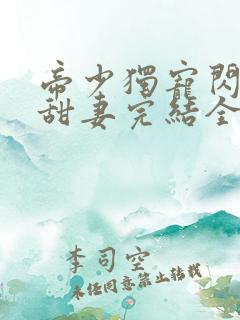 帝少獨寵閃
甜妻完結全
李司空
未經同意禁止转载